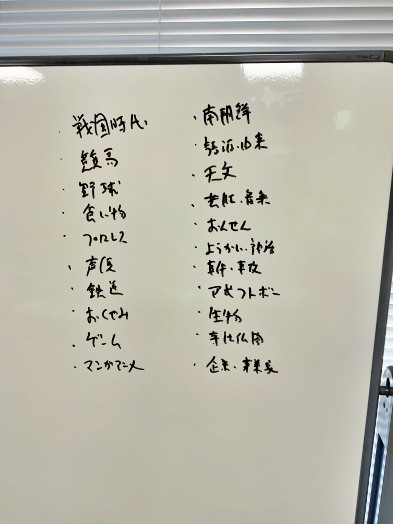 ・戦国時代
・競馬
・野球
・食い物
・プロレス
・声優
・鉄道
・おくすみ
・ゲーム
・マンガアニメ
・南朝鮮
・語源・由来
・天文
・芸能・音楽
・おんせん
・ようかい・神話
・事件・事故
・アメフトボー
・生物
・寺社仏閣
・企業・事業家